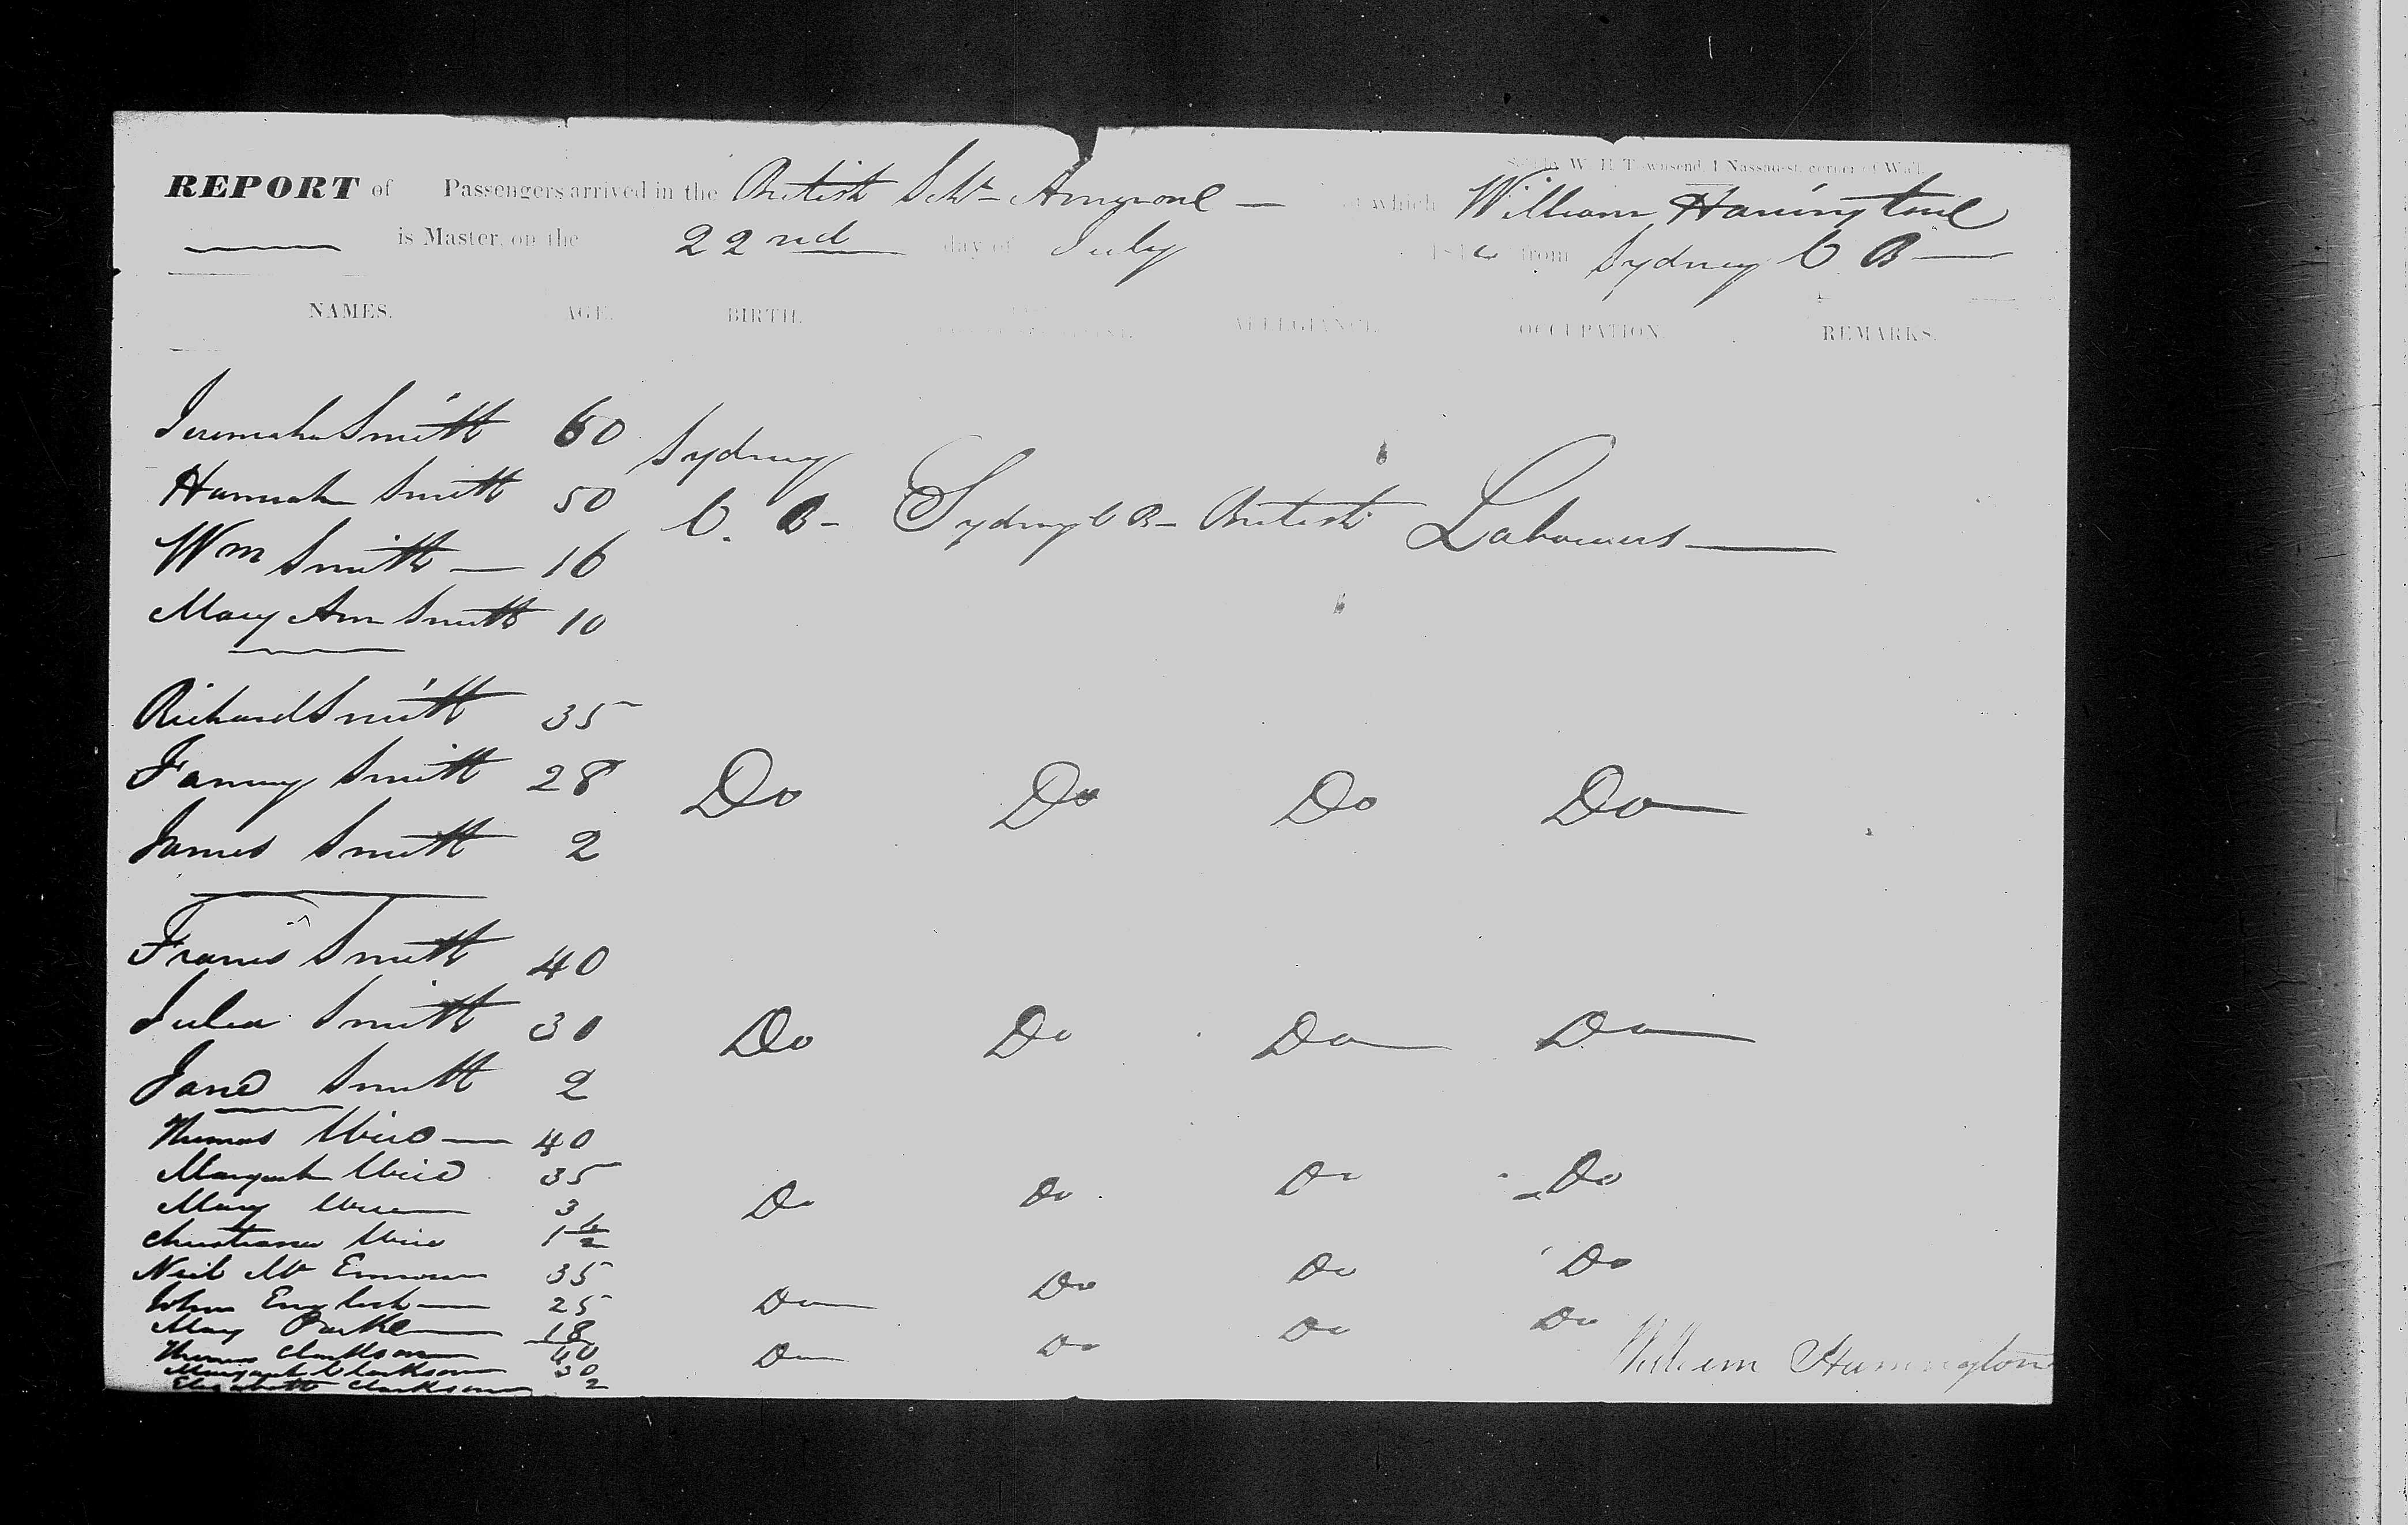 Sold by W. H. Townsend, 1 Nassau-st. corner of Wall.
REPORT of Passengers arrived in the British Schr of which William Harrington
is Master, on the 22nd day of July 184 from Sydney C B
NAMES. AGE. BIRTH. ALLEGIANCE. OCCUPATION. REMARKS.
Jeremiah Smith 60 Sydney
Hannah Smith 50 C. B - Sydney C B - British Labourers
Wm Smith 16
Mary Ann Smith 10
Richard Smith 35
Fanny Smith 28 Do Do Do Do
James Smith 2
Francis Smith 40
Julia Smith 30 Do Do Do Do
Jane Smith 2
Thomas 40
Margaret 35 Do Do Do Do
Mary 3
Christiana 1 1/2
Neil Mc 35 Do Do Do Do
John English 25
Mary Parke 18
Thomas Clarkson 40 Do Do Do Do
Margaret Clarkson 30
Elizabeth Clarkson 2
William Harrington